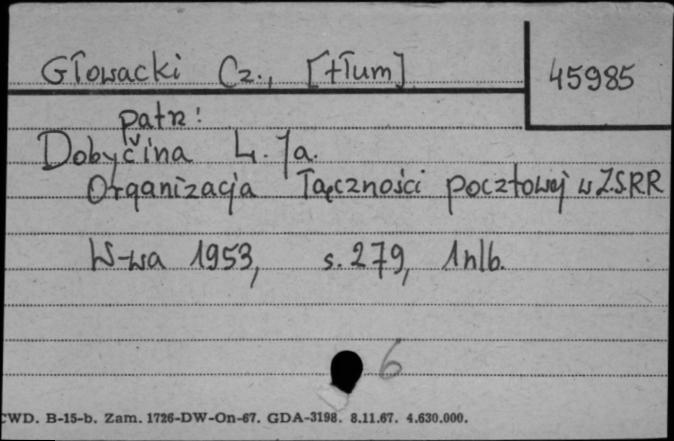 Głowacki Cz., [tłum] 45985
patrz:
Dobyčina L. Ja.
Organizacja łączności pocztowej w ZSRR
W-wa 1953, s. 279, 1 nlb.
6
CWD. B-15-b. Zam. 1726-DW-On-67. GDA-3198. 8.11.67. 4.630.000.